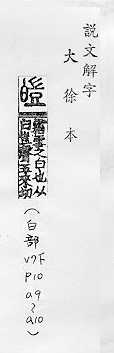 説文解字
大徐本
皚
霜雪之白也从
白豈聲五來切
(白部V7下P10a9~a10)